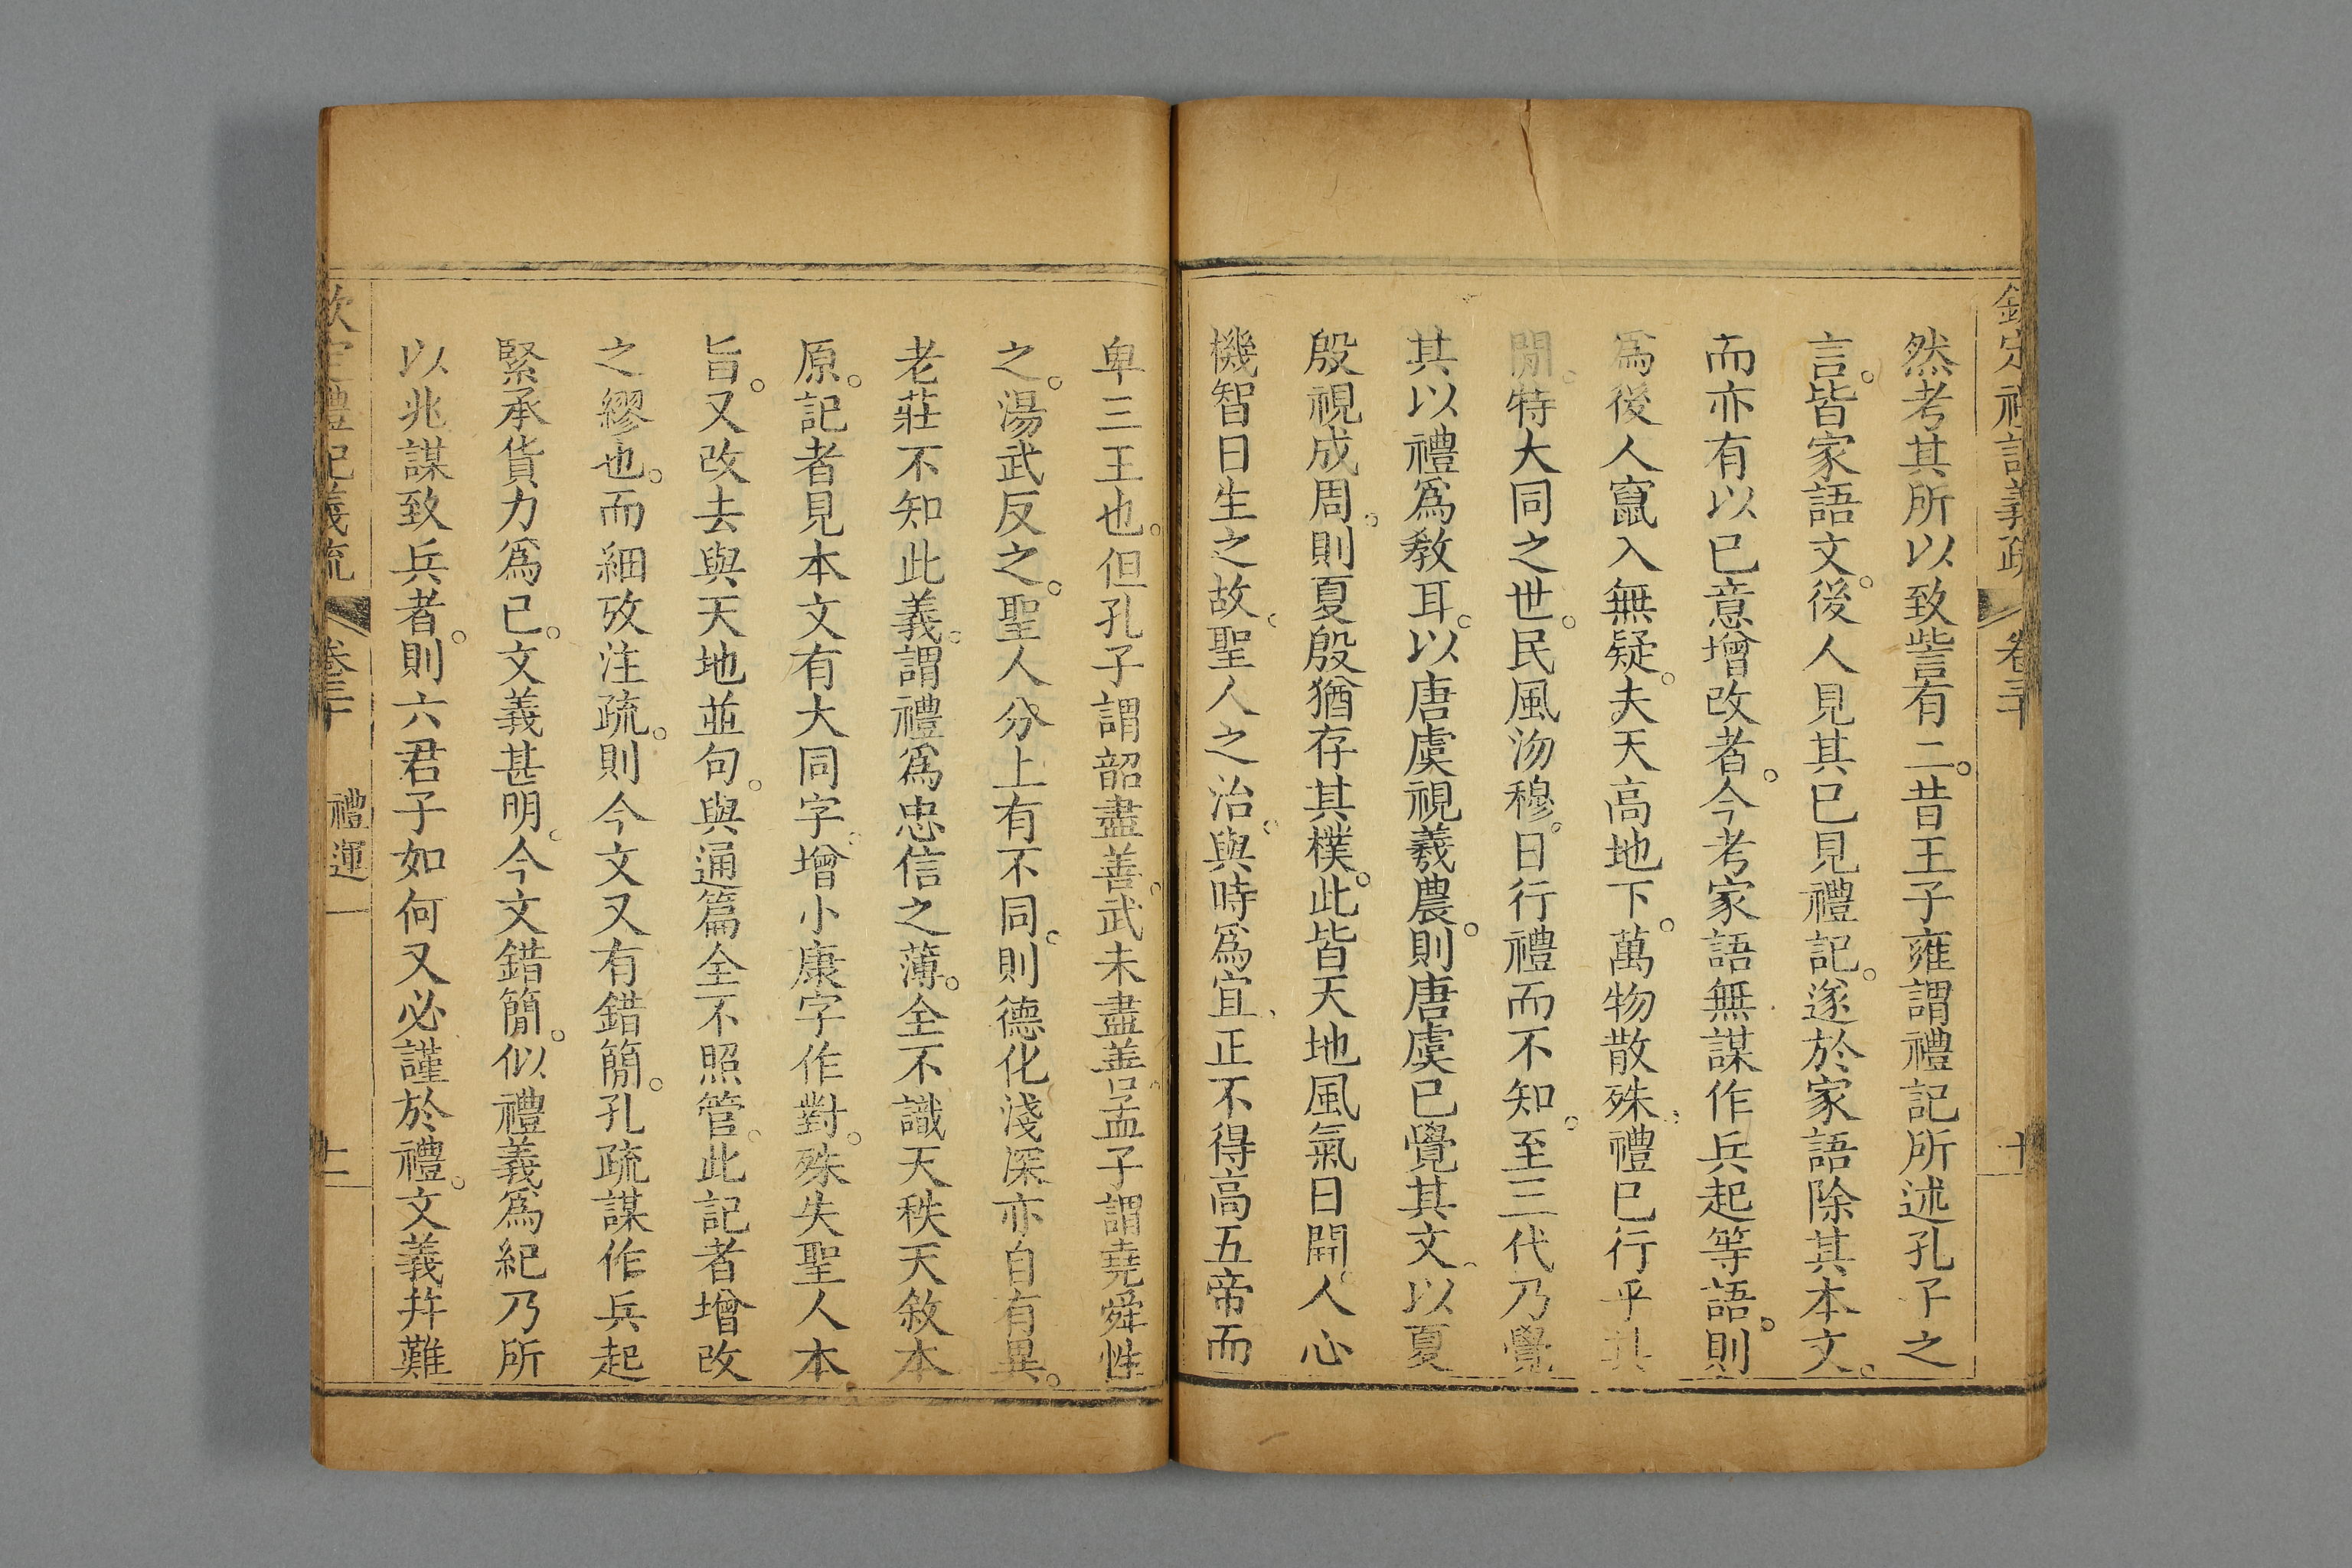 欽定禮記義疏 卷三十 十
然考其所以致訾有二。昔王子雍謂禮記所述孔子之
言。皆家語文。後人見其已見禮記。遂於家語除其本文。
而亦有以已意增改者。今考家語無謀作兵起等語。則
爲後人竄入無疑。夫天高地下。萬物散殊。禮已行乎其
間。特大同之世。民風沕穆。日行禮而不知。至三代乃覺
其以禮爲敎耳。以唐虞視羲農。則唐虞已覺其文。以夏
殷視成周。則夏殷猶存其樸。此皆天地風氣日開。人心
機智日生之故。聖人之治。與時爲宜。正不得高五帝而
卑三王也。但孔子謂韶盡善。武未盡善。孟子謂堯舜性
之。湯武反之。聖人分上有不同。則德化淺深亦自有異。
老莊不知此義。謂禮爲忠信之薄。全不識天秩天敘本
原。記者見本文有大同字。增小康字作對。殊失聖人本
旨。又改去與天地並句。與通篇全不照管。此記者增改
之繆也。而細攷注疏。則今文又有錯簡。孔疏謀作兵起
緊承貨力爲己。文義甚明。今文錯簡。似禮義爲紀乃所
以兆謀致兵者。則六君子如何又必謹於禮。文義幷難
欽定禮記義疏 卷三十 禮運一 十二